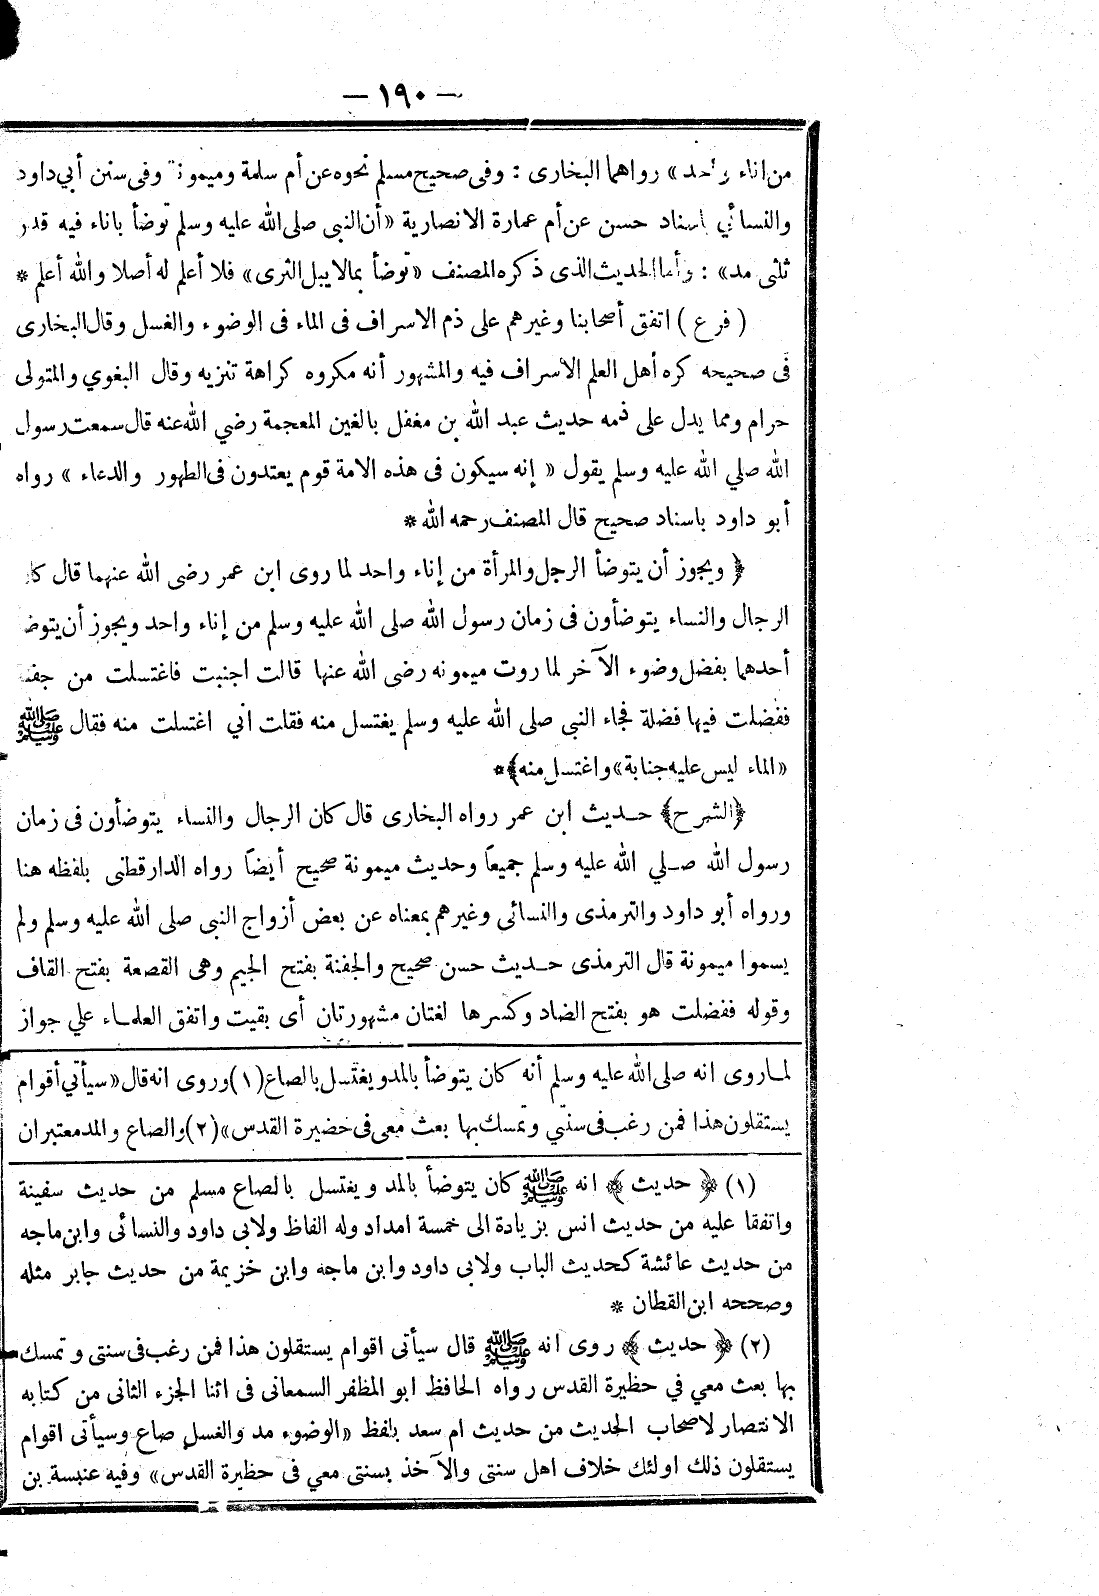 — ١٩٠ —
من اناء واحد» رواهما البخارى : وفى صحيح مسلم نحوه عن أم سلمة وميمونة وفى سنن أبي داود
والنسائي باسناد حسن عن أم عمارة الانصارية «أن النبى صلى الله عليه وسلم توضأ باناء فيه قدر
ثلثى مد» : وأما الحديث الذى ذكره المصنف «توضأ بمالا يبل الثرى» فلا أعلم له أصلا والله أعلم *
( فرع ) اتفق أصحابنا وغيرهم على ذم الاسراف فى الماء فى الوضوء والغسل وقال البخارى
فى صحيحه كره أهل العلم الاسراف فيه والمشهور أنه مكروه كراهة تنزيه وقال البغوي والمتولى
حرام ومما يدل على ذمه حديث عبد الله بن مغفل بالغين المعجمة رضي الله عنه قال سمعت رسول
الله صلي الله عليه وسلم يقول « إنه سيكون فى هذه الامة قوم يعتدون فى الطهور والدعاء » رواه
أبو داود باسناد صحيح قال المصنف رحمه الله *
﴿ ويجوز أن يتوضأ الرجل والمرأة من إناء واحد لما روى ابن عمر رضى الله عنهما قال كان
الرجال والنساء يتوضأون فى زمان رسول الله صلى الله عليه وسلم من إناء واحد ويجوز أن يتوضأ
أحدهما بفضل وضوء الآخر لما روت ميمونه رضى الله عنها قالت اجنبت فاغتسلت من جفنة
ففضلت فيها فضلة فجاء النبى صلى الله عليه وسلم يغتسل منه فقلت أني اغتسلت منه فقال ﷺ
«الماء ليس عليه جنابة» واغتسل منه﴾ *
﴿الشرح﴾ حديث ابن عمر رواه البخارى قال كان الرجال والنساء يتوضأون فى زمان
رسول الله صلي الله عليه وسلم جميعاً وحديث ميمونة صحيح أيضاً رواه الدارقطنى بلفظه هنا
ورواه أبو داود والترمذى والنسائى وغيرهم بمعناه عن بعض أزواج النبى صلى الله عليه وسلم ولم
يسموا ميمونة قال الترمذى حديث حسن صحيح والجفنة بفتح الجيم وهى القصعة بفتح القاف
وقوله ففضلت هو بفتح الضاد وكسرها لغتان مشهورتان أى بقيت واتفق العلماء علي جواز
لما روى انه صلى الله عليه وسلم أنه كان يتوضأ بالمد ويغتسل بالصاع (١) وروى انه قال «سيأتي أقوام
يستقلون هذا فمن رغب فى سنتي وتمسك بها بعث معى فى حضيرة القدس» (٢) والصاع والمد معتبران
(١) ﴿ حديث ﴾ انه ﷺ كان يتوضأ بالمد ويغتسل بالصاع مسلم من حديث سفينة
واتفقا عليه من حديث انس بزيادة الى خمسة امداد وله الفاظ ولابى داود والنسائى وابن ماجه
من حديث عائشة كحديث الباب ولابى داود وابن ماجه وابن خزيمة من حديث جابر مثله
وصححه ابن القطان *
(٢) ﴿ حديث ﴾ روى انه ﷺ قال سيأتى اقوام يستقلون هذا فمن رغب فى سنتى وتمسك
بها بعث معي في حظيرة القدس رواه الحافظ ابو المظفر السمعانى فى اثنا الجزء الثانى من كتابه
الانتصار لاصحاب الحديث من حديث ام سعد بلفظ «الوضوء مد والغسل صاع وسيأتى اقوام
يستقلون ذلك اولئك خلاف اهل سنتى والآخذ بسنتى معي فى حظيرة القدس» وفيه عنبسة بن